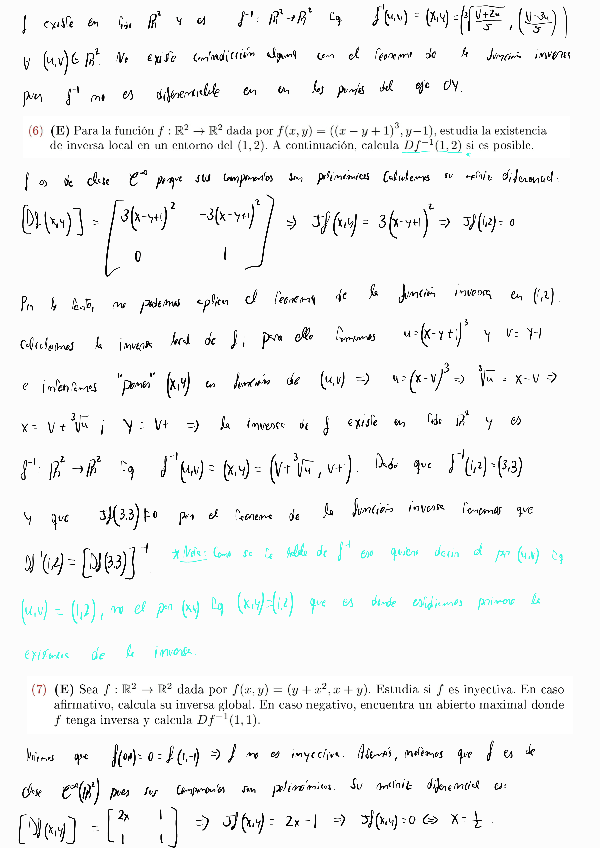 f existe en todo ℝ² y es f⁻¹: ℝ²→ℝ² tq f⁻¹(u,v) = (x,y) = (∛((v+2u)/5), ((v-3u)/5))
∀ (u,v) ∈ ℝ². No existe contradicción alguna con el teorema de la función inversa
pues f⁻¹ no es diferenciable en en los puntos del eje OY.
(6) (E) Para la función f : ℝ² → ℝ² dada por f(x, y) = ((x − y + 1)³, y−1), estudia la existencia
de inversa local en un entorno del (1, 2). A continuación, calcula Df⁻¹(1, 2) si es posible.
f es de clase C^∞ porque sus componentes son polinómicas. Calculemos su matriz diferencial.
[Df(x,y)] = [3(x-y+1)² -3(x-y+1)² ; 0 1] ⇒ Jf(x,y) = 3(x-y+1)² ⇒ Jf(1,2) = 0
Por lo tanto, no podemos aplicar el teorema de la función inversa en (1,2).
Calculemos la inversa local de f, para ello tomamos u=(x-y+1)³ y v= y-1
e intentamos "poner" (x,y) en función de (u,v) ⇒ u=(x-v)³ ⇒ ∛u = x-v ⇒
x = v + ∛u ; y = v+1 ⇒ la inversa de f existe en todo ℝ² y es
f⁻¹: ℝ²→ℝ² tq f⁻¹(u,v) = (x,y) = (v+∛u, v+1). Dado que f⁻¹(1,2)=(3,3)
y que Jf(3,3)≠0 por el teorema de la función inversa tenemos que
Df⁻¹(1,2) = [Df(3,3)]⁻¹ * Nota: Como se te habla de f⁻¹ eso quiere decir el par (u,v) tq
(u,v) = (1,2), no el par (x,y) tq (x,y)=(1,2) que es donde estudiamos primero la
existencia de la inversa.
(7) (E) Sea f : ℝ² → ℝ² dada por f(x, y) = (y + x², x + y). Estudia si f es inyectiva. En caso
afirmativo, calcula su inversa global. En caso negativo, encuentra un abierto maximal donde
f tenga inversa y calcula Df⁻¹(1, 1).
que f(0,0)=0=f(1,-1) ⇒ f no es inyectiva. Además, notemos que f es de
clase C^∞(ℝ²) pues sus componentes son polinómicas. Su matriz diferencial es:
[Df(x,y)] = [2x 1 ; 1 1] ⇒ Jf(x,y) = 2x-1 ⇒ Jf(x,y)=0 ⇔ x=½.